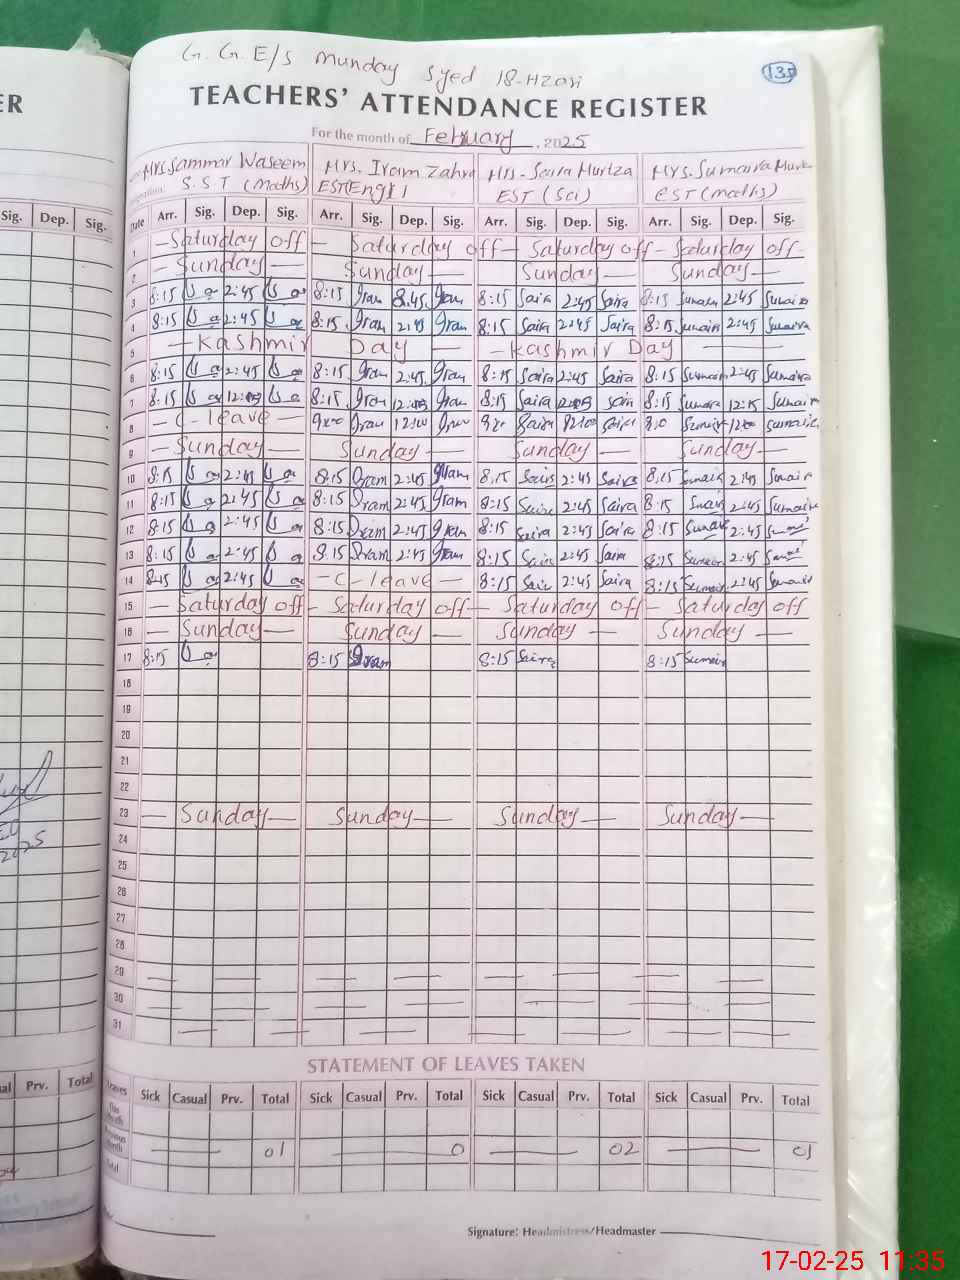 G. G. E/S Munday Syed 18-Hzari
135
TEACHERS' ATTENDANCE REGISTER
For the month of February, 2025
Mrs. Sammar Waseem Mrs. Iram Zahra Mrs. Saira Murtza Mrs. Sumaira
S.S.T (Maths) EST(Engl) EST (Sci) EST (maths)
Date Arr. Sig. Dep. Sig. Arr. Sig. Dep. Sig. Arr. Sig. Dep. Sig. Arr. Sig. Dep. Sig.
1 — Saturday off — Saturday off — Saturday off — Saturday off —
2 — Sunday — Sunday — Sunday — Sunday —
3 8:15 2:45 8:15 Iram 8:45 Iram 8:15 Saira 2:45 Saira 8:15 Sumaira 2:45 Sumaira
4 8:15 2:45 8:15 Iram 2:45 Iram 8:15 Saira 2:45 Saira 8:15 Sumaira 2:45 Sumaira
5 — Kashmir Day — — Kashmir Day —
6 8:15 2:45 8:15 Iram 2:45 Iram 8:15 Saira 2:45 Saira 8:15 Sumaira 2:45 Sumaira
7 8:15 8:15 Iram Iram 8:15 Saira 8:15 Sumaira 12:15 Sumaira
8 — C-leave — Iram 12:00 Iram Saira 12:00 Saira Sumaira 12:00 Sumaira
9 — Sunday — Sunday — Sunday — Sunday —
10 8:15 2:45 8:15 Iram 2:45 Iram 8:15 Saira 2:45 Saira 8:15 Sumaira 2:45 Sumaira
11 8:15 2:45 8:15 Iram 2:45 Iram 8:15 Saira 2:45 Saira 8:15 Sumaira 2:45 Sumaira
12 8:15 2:45 8:15 Iram 2:45 Iram 8:15 Saira 2:45 Saira 8:15 Sumaira 2:45
13 8:15 2:45 8:15 Iram 2:45 Iram 8:15 Saira 2:45 Saira 8:15 Sumaira 2:45
14 8:15 2:45 — C-leave — 8:15 Saira 2:45 Saira 8:15 Sumaira 2:45 Sumaira
15 — Saturday off — Saturday off — Saturday off — Saturday off
16 — Sunday — Sunday — Sunday — Sunday —
17 8:15 8:15 Iram 8:15 Saira 8:15 Sumaira
18
19
20
21
22
23 — Sunday — Sunday — Sunday — Sunday —
24
25
26
27
28
29
30
31
STATEMENT OF LEAVES TAKEN
Leaves Sick Casual Prv. Total Sick Casual Prv. Total Sick Casual Prv. Total Sick Casual Prv. Total
01 0 02 01
Signature: Headmistress/Headmaster
ER
Sig. Dep. Sig.
2025
Prv. Total
17-02-25 11:35